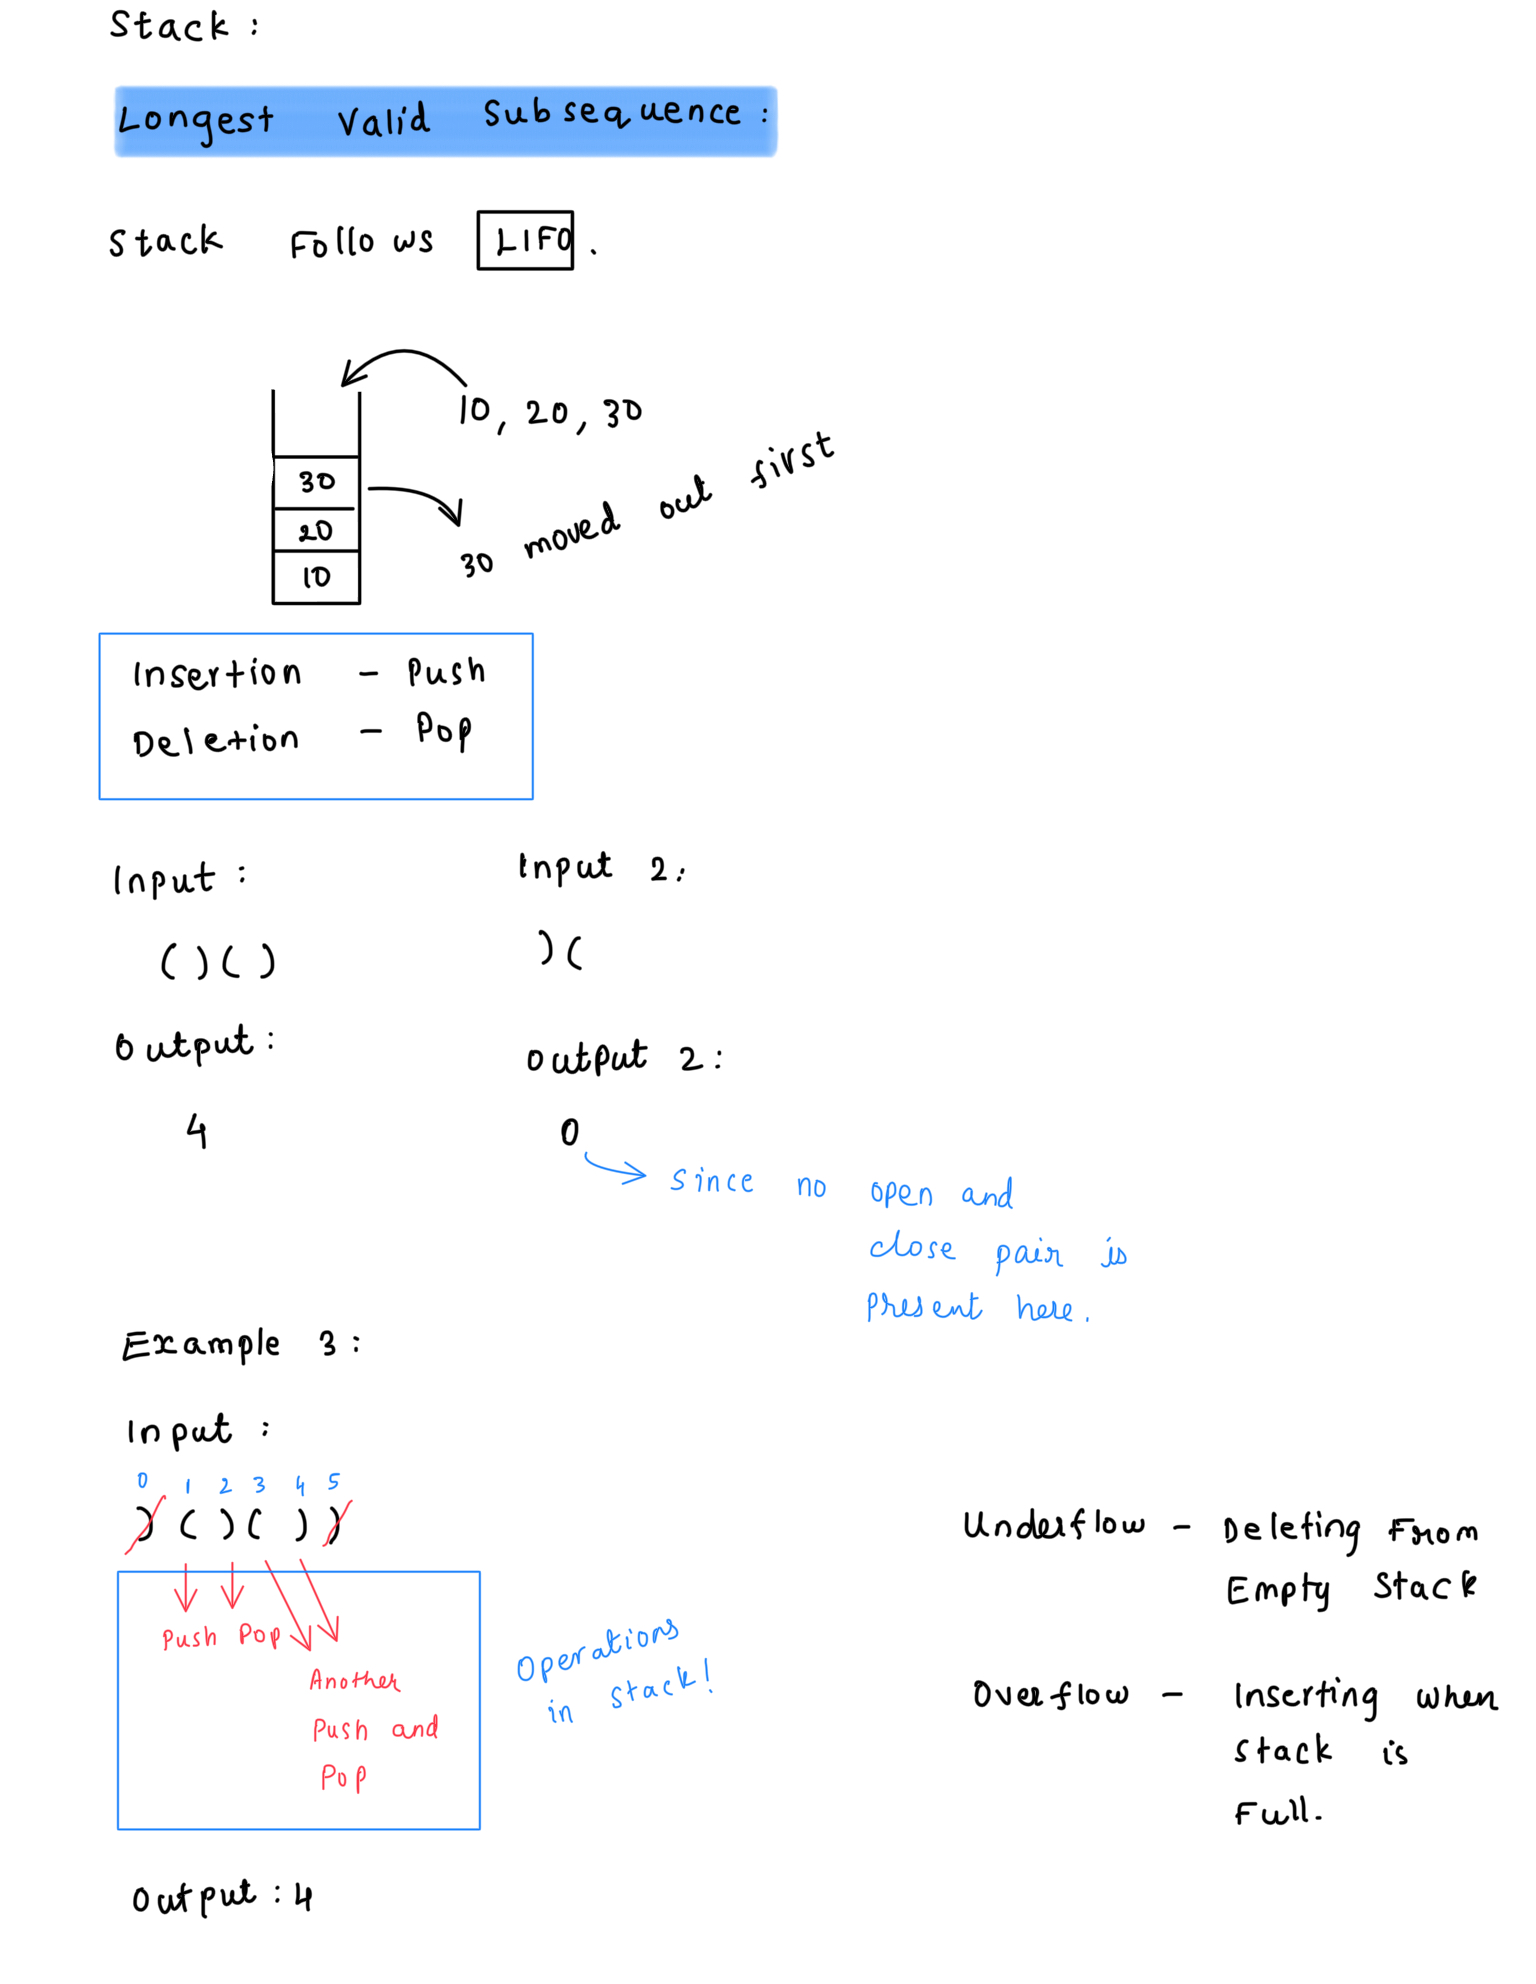 Stack :
Longest Valid Subsequence :
Stack Follows LIFO .
10, 20, 30
30
20
10
30 moved out first
Insertion - Push
Deletion - Pop
Input :
( ) ( )
Output :
4
Input 2 :
) (
Output 2 :
0
since no open and
close pair is
present here .
Example 3 :
Input :
0 1 2 3 4 5
) ( ) ( ) )
Push Pop
Another
Push and
Pop
Operations
in stack!
Output : 4
Underflow - Deleting From
Empty Stack
Overflow - Inserting when
stack is
Full.